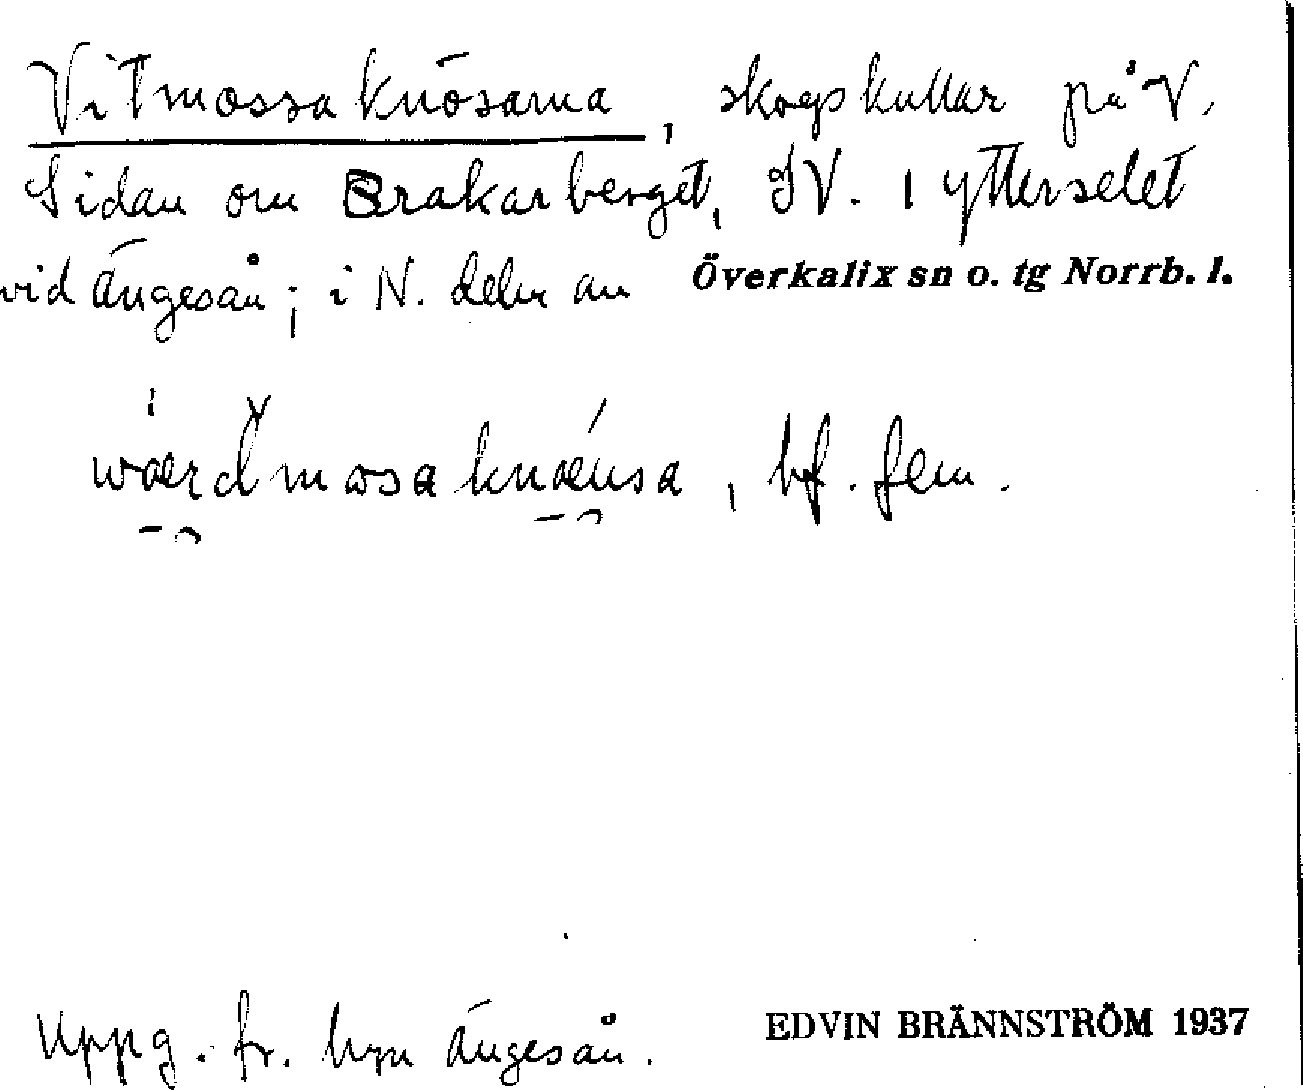 Vitmossaknösarna, skogskullar på V.
Sidan om Brakarberget, SV. i ytterselet
vid Ängesån; i N. delen av Överkalix sn o. tg Norrb. l.
bf. fem.
Uppg. fr. byn Ängesån. EDVIN BRÄNNSTRÖM 1937